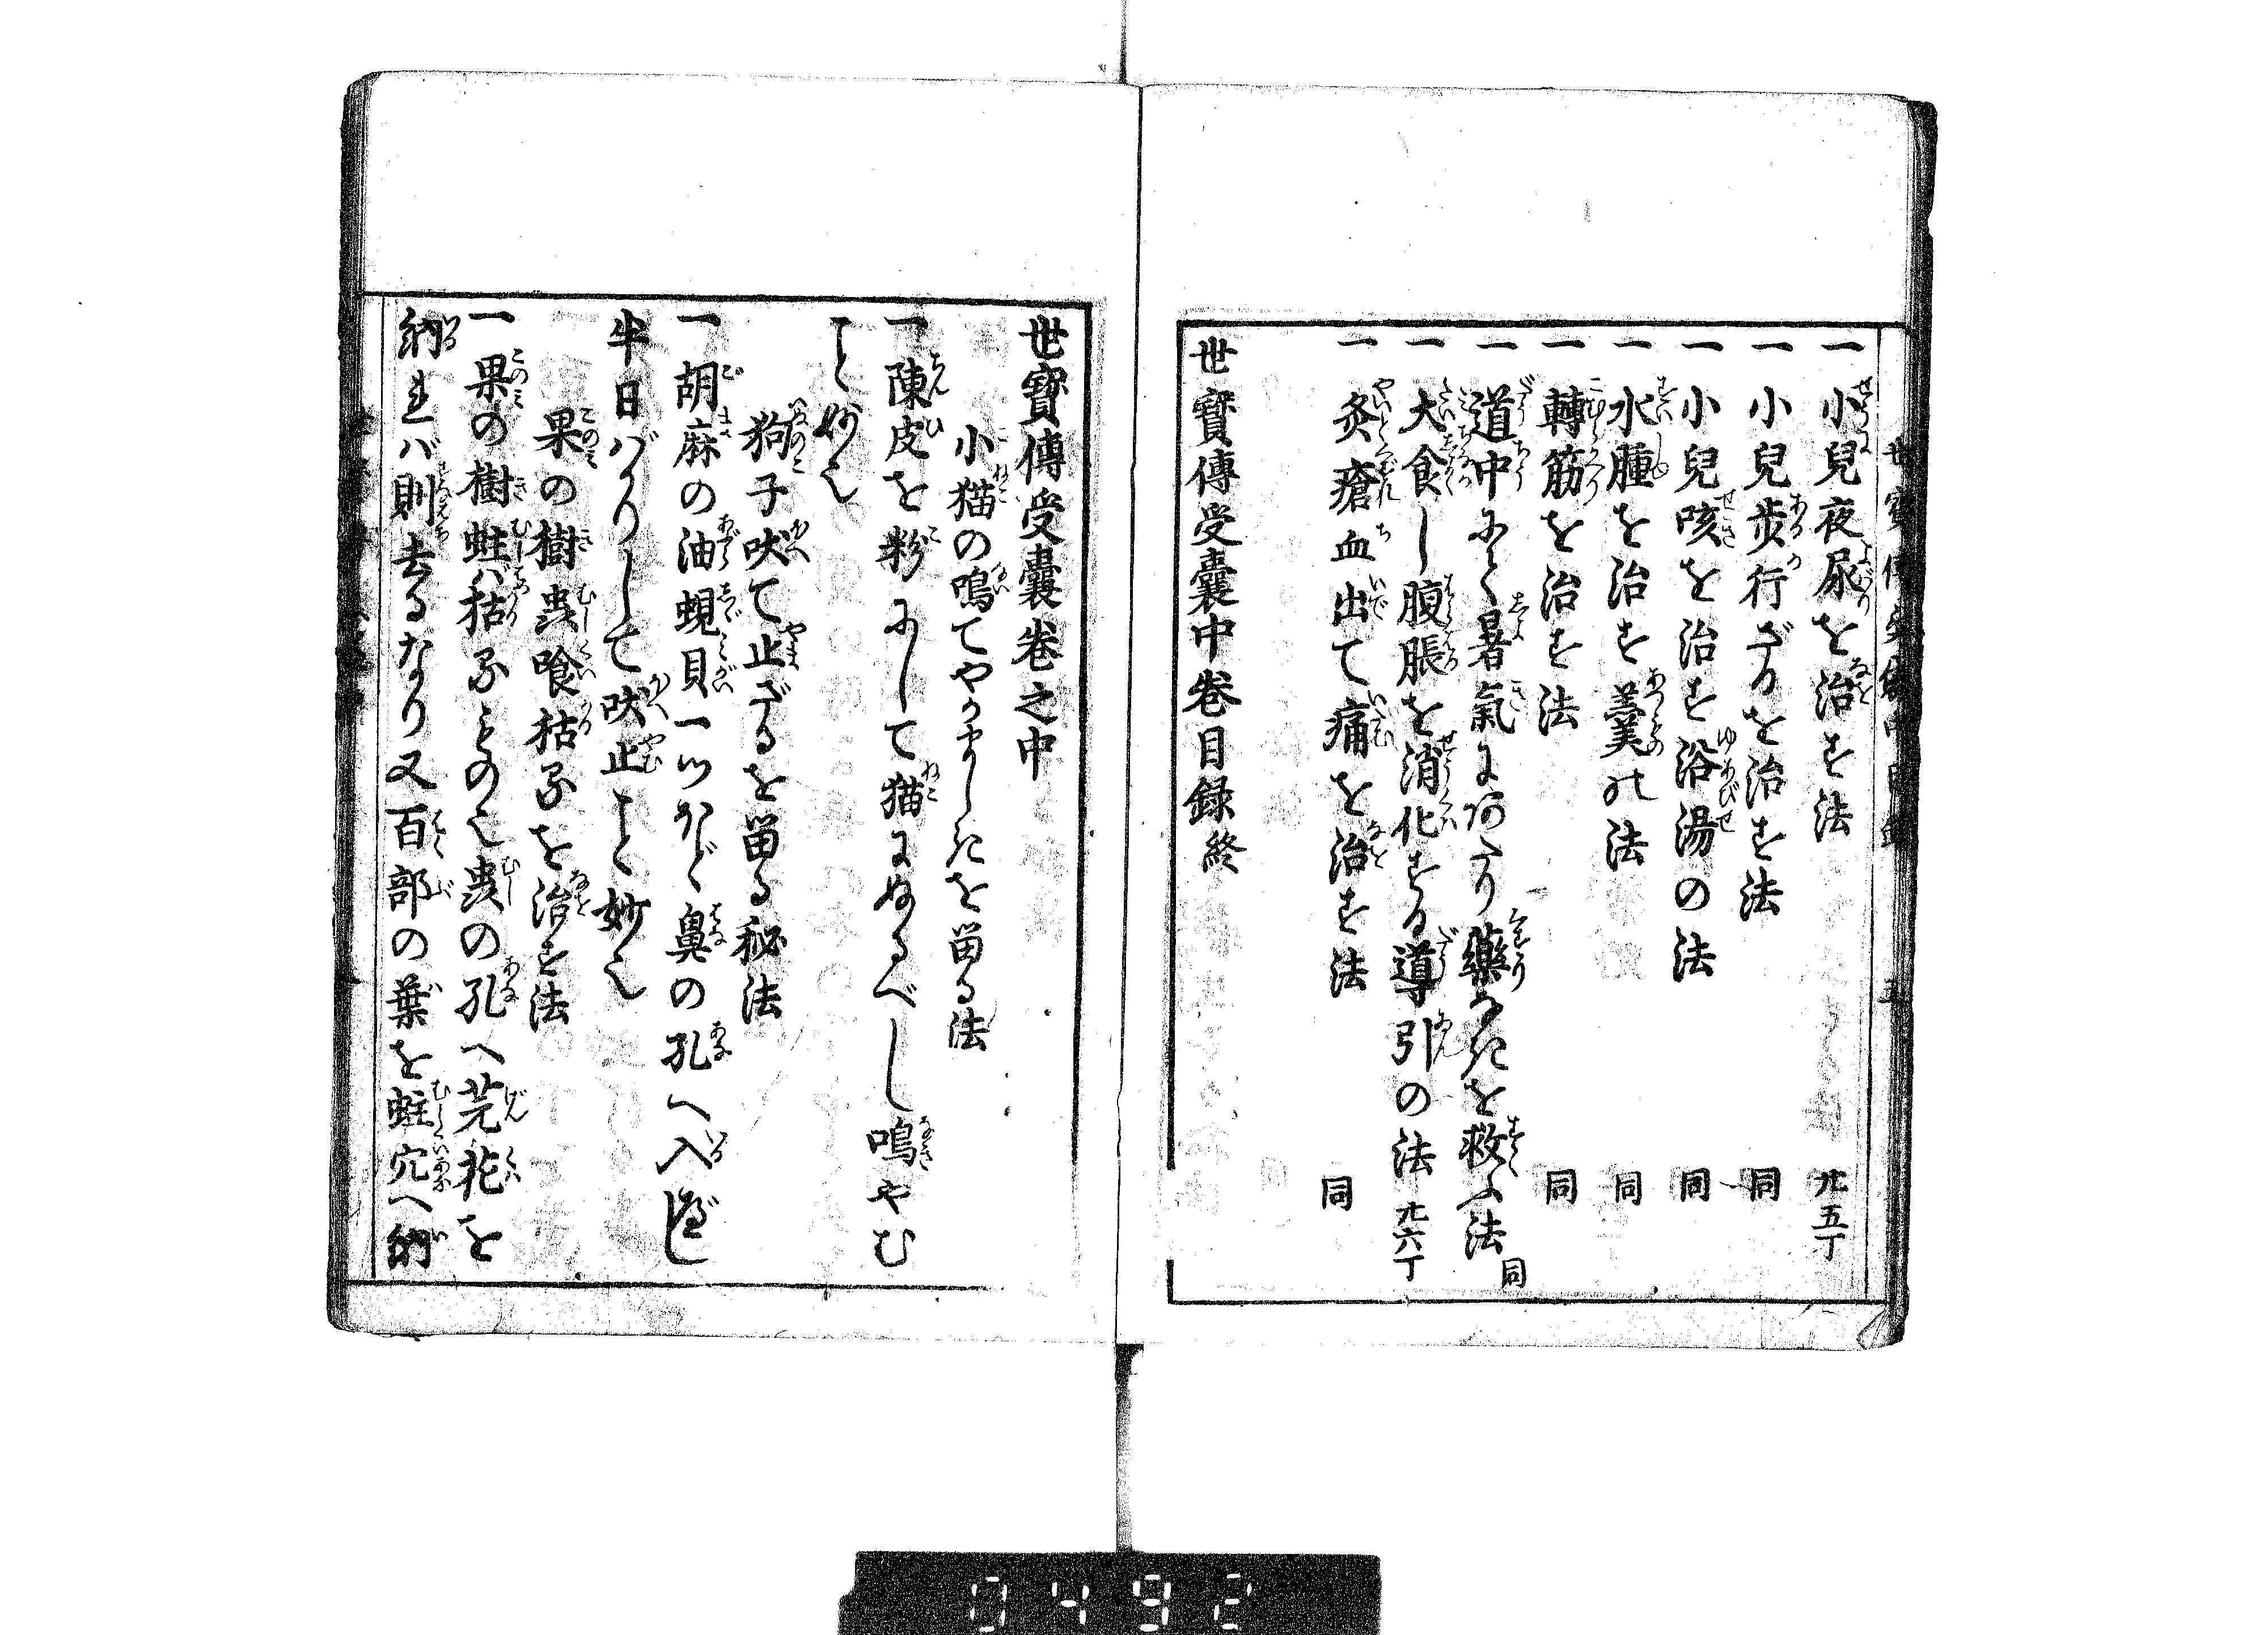 一 小兒夜尿を治す法 廿五丁
一 小兒歩行ざるを治す法 同
一 小兒咳を治す浴湯の法 同
一 水腫を治す羹の法 同
一 轉筋を治す法 同
一 道中にて暑氣にあたり藥なきを救ふ法 同
一 大食し腹脹を消化する導引の法 廿六丁
一 灸瘡血出て痛を治す法 同
世寳傳受嚢中巻目録終
世寳傳受嚢巻之中
小猫の鳴てやかましきを畄る法
一 陳皮を粉にして猫にぬるべし鳴やむ
こと妙也
狗子吠て止ざるを畄る秘法
一 胡麻の油蜆貝一ツほど鼻の孔へ入べし
半日ばかりして吠止こと妙也
果の樹虫喰枯るを治す法
一 果の樹蛀ば枯るもの也虫の孔へ芫花を
納れバ則去るなり又百部の葉を蛀穴へ納
0492